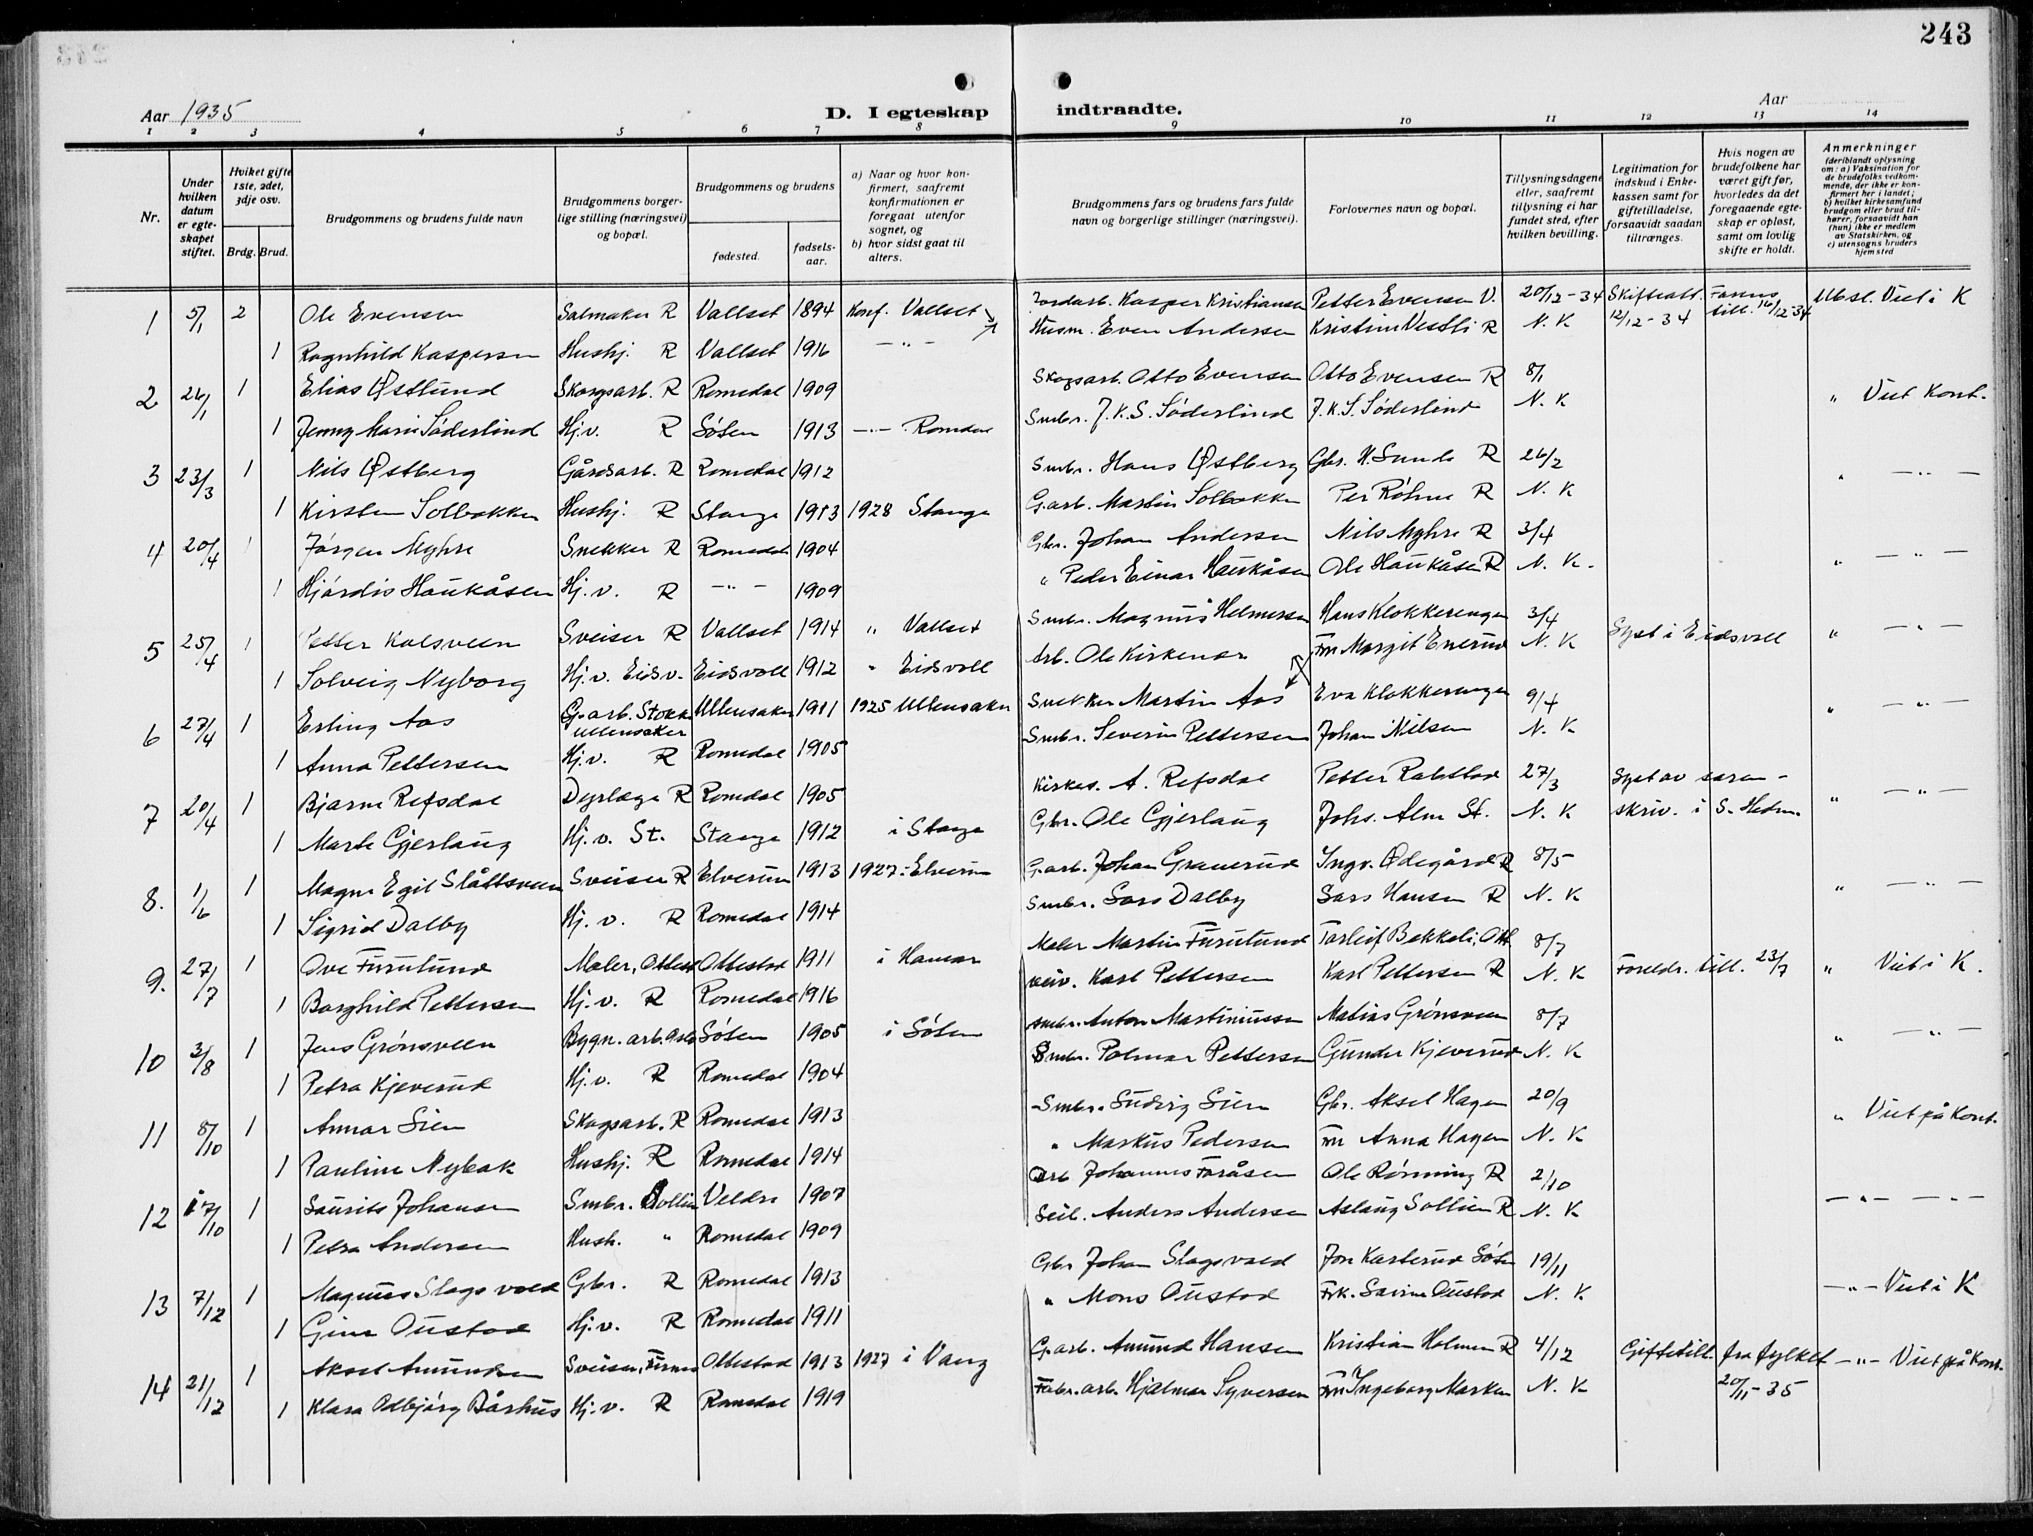 243
Aar 1935
D. I egteskap indtraadte.
Aar
1 2 3 4 5 6 7 8 9 10 11 12 13 14
Nr.
Under hvilken datum er egteskapet stiftet.
Hviket gifte 1ste, 2det, 3dje osv.
Brdg. Brud.
Brudgommens og brudens fulde navn
Brudgommens borgerlige stilling (næringsvei) og bopæl.
Brudgommens og brudens
fødested. fødselsaar.
a) Naar og hvor konfirmert, saafremt konfirmationen er foregaat utenfor sognet, og
b) hvor sidst gaat til alters.
Brudgommens fars og brudens fars fulde navn og borgerlige stillinger (næringsvei).
Forlovernes navn og bopæl.
Tillysningsdagene eller, saafremt tillysning ei har fundet sted, efter hvilken bevilling.
Legitimation for indskud i Enkekassen samt for giftetilladelse, forsaavidt saadan tiltrænges.
Hvis nogen av brudefolkene har været gift før, hvorledes da det foregaaende egteskap er opløst, samt om lovlig skifte er holdt.
Anmerkninger
(deriblandt oplysning om: a) Vaksination for de brudefolks vedkommende, der ikke er konfirmert her i landet; b) hvilket kirkesamfund brudgom eller brud tilhører, forsaavidt han (hun) ikke er medlem av Statskirken, og c) utensogns bruders hjemsted
1 5/1 2 Ole Evensen Salmaker R Vallset 1894 Konf. Vallset Jordarb. Kasper Kristiansen Petter Evensen V. 20/12-34 Skifteatt. 12/12-34 Farens till. 16/12-34 Ubsl. Viet i K
1 Ragnhild Kaspersen Hushj. R Vallset 1916 - " - Husm. Even Andersen Kristine Vestli R N. K
2 26/1 1 Elias Østlund Skogsarb. R Romedal 1909 Skogsarb. Otto Evensen Otto Evensen R 8/1 " Viet Kont.
1 Jenny Marie Søderlind Hj.v. R Løten 1913 - " - Romedal Smbr. J. K. S. Søderlind J. K. S. Søderlind N. K
3 23/3 1 Nils Østberg Gårdsarb. R Romedal 1912 Smbr. Hans Østberg Gbr. N. Sunde R 26/2 " - " -
1 Kirsten Solbakken Hushj. R Stange 1913 1928 Stange G.arb. Martin Solbakken Per Røhne R N. K
4 20/4 1 Jørgen Myhre Snekker R Romedal 1904 Gbr. Johan Andersen Nils Myhre R 3/4 " - " -
1 Hjørdis Haukåsen Hj.v. R - " - 1909 " Peder Einar Haukåsen Ole Haukåsen R N. K.
5 25/4 1 Petter Kolsveen Sveiser R Vallset 1914 " Vallset Smbr. Magnus Helmersen Hans Klokkerengen 3/4 Lyst i Eidsvoll " - " -
1 Solveig Nyborg Hj.v. Eidsv. Eidsvoll 1912 " Eidsvoll Arb. Ole Kirkemor Fru Margit Enerud N. K
6 27/4 1 Erling Aas G.arb. Stokke Ullensaker Ullensaker 1911 1925 Ullensaker Snekker Martin Aas Eva Klokkerengen 9/4 " - " -
1 Anna Pettersen Hj.v. R Romedal 1905 Smbr. Severin Pettersen Johan Nilsen N. K
7 20/4 1 Bjarne Refsdal Dyrlæge R Romedal 1905 Kirkes. A. Refsdal Petter Rabstad 27/3 Lyst av sorenskriv. i S. Hedm. " - " -
1 Marte Gjerlaug Hj.v. St. Stange 1912 i Stange Gbr. Ole Gjerlaug Johs. Alm St. N. K
8. 1/6 1 Magne Egil Slåttsveen Sveiser R Elverum 1913 1927: Elverum G.arb. Johan Granerud Ingv. Ødegård R 8/5 " - " -
1 Sigrid Dalby Hj.v. R Romedal 1914 Smbr. Lars Dalby Lars Hansen R N. K
9. 27/7 1 Ove Furulund Maler, Ottest Ottestad 1911 i Hamar Maler Martin Furulund Torleif Bekkeli, Ott 8/7 Foreldr. till. 23/7 " Viet i K.
1 Borghild Pettersen Hj.v. R Romedal 1916 Karl Pettersen Karl Pettersen R N. K
10 3/8 1 Jens Grønsveen Bygn.arb. Oslo Løten 1905 i Løten Smbr. Anton Martiniussen Matias Grønsveen 8/7 " - " -
1 Petra Kjeverud Hj.v. R Romedal 1904 Smbr. Polmar Pettersen Gunder Kjeverud N. K
11 8/10 1 Annar Lien Skogsarb. R Romedal 1913 Smbr. Ludvig Lien Gbr. Aksel Hagen 20/9 " Viet på Kont.
1 Pauline Nybak Hushj. R Romedal 1914 " Markus Pedersen Fru Anna Hagen N. K
12 17/10 1 Laurits Johansen Smbr. Sollien Veldre 1907 Arb Johannes Foråsen Ole Rønning R 2/10 - " - - " -
1 Petra Andersen Hush. " Romedal 1909 Anders Andersen Aslaug Sollien R N. K
13 7/12 1 Magnus Slagsvold Gbr. R Romedal 1913 Gbr Johan Slagsvold Jon Karterud Løten 19/11 - " - Viet i K
1 Gina Oustad Hj.v. R Romedal 1911 " Mons Oustad Frk. Lavine Oustad N. K
14 21/12 1 Aksel Amundsen Sveiser, Furnes Ottestad 1913 1927 i Vang G.arb. Amund Hansen Kristian Holmen R 4/12 Giftetill. fra fylket 20/11-35 - " - Viet på Kont.
1 Klara Odbjørg Bårhus Hj.v. R Romedal 1919 Fabr.arb. Hjalmar Syversen Fru Ingeborg Marken N. K